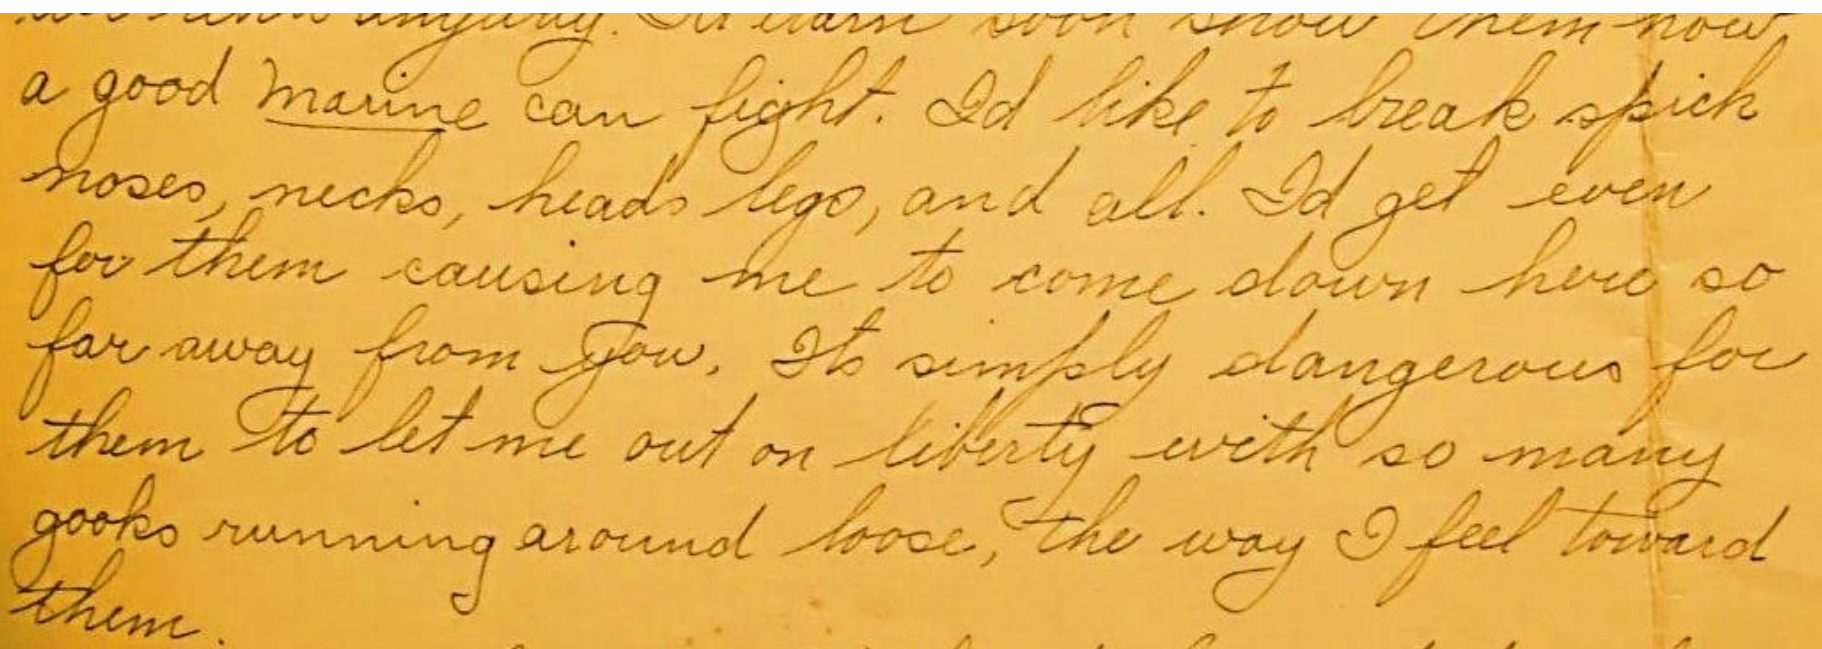 anyway. I'd darn soon show them how
a good marine can fight. Id like to break spick
noses, necks, heads legs, and all. Id get even
for them causing me to come down here so
far away from you. Its simply dangerous for
them to let me out on liberty with so many
gooks running around loose, the way I feel toward
them.